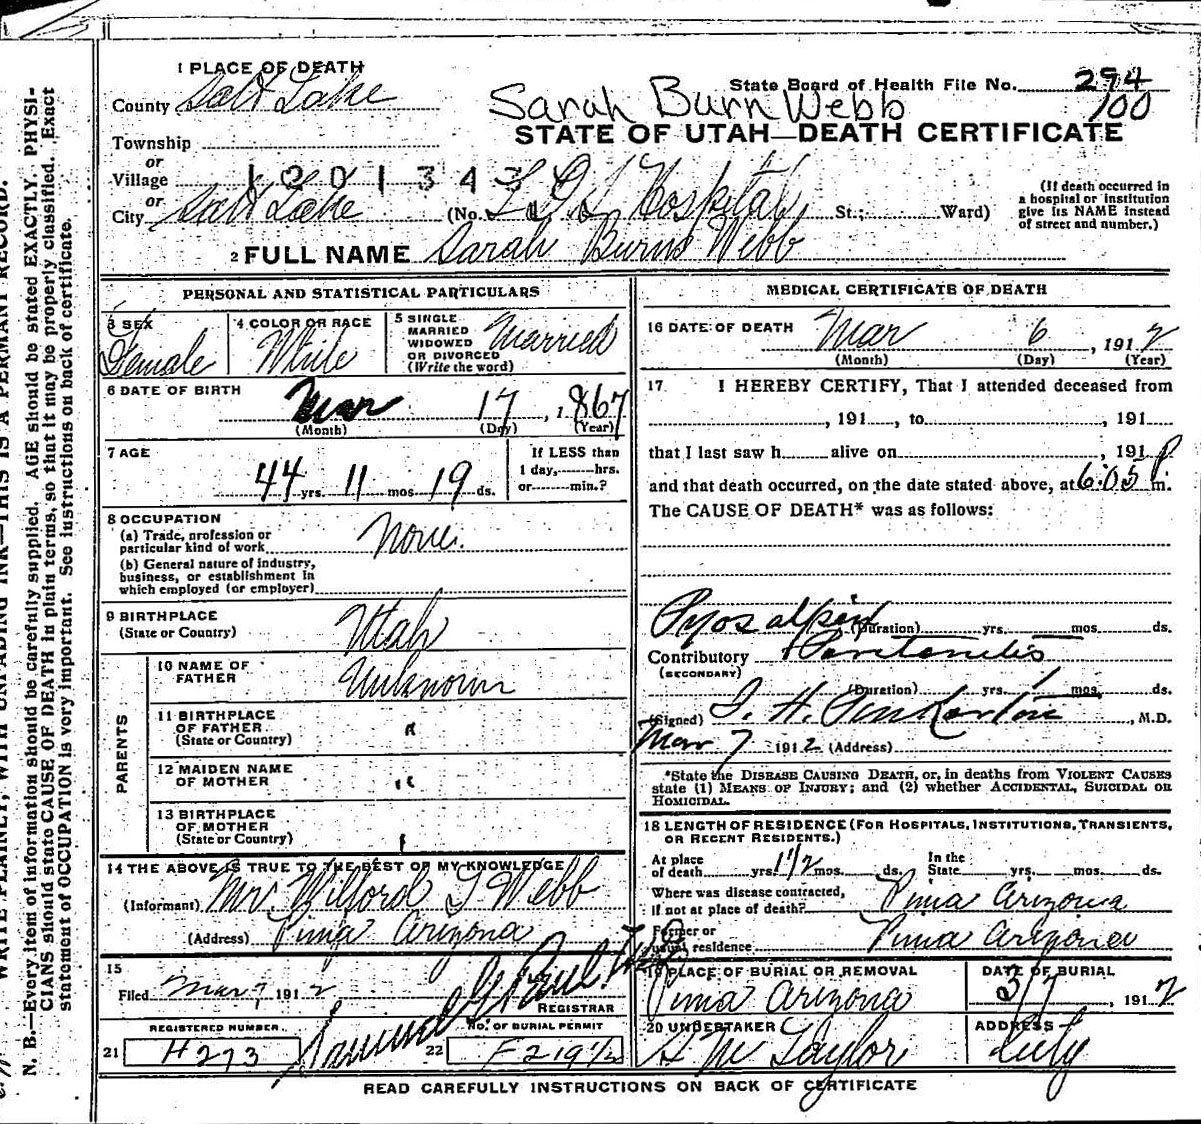 1 PLACE OF DEATH
State Board of Health File No. 294
County Salt Lake
Sarah Burn Webb
100
STATE OF UTAH—DEATH CERTIFICATE
Township
or
Village
1201343
or
City Salt Lake (No. L D S Hospital, St.; Ward)
(If death occurred in
a hospital or institution
give its NAME instead
of street and number.)
2 FULL NAME Sarah Burns Webb
PERSONAL AND STATISTICAL PARTICULARS
3 SEX
Female
4 COLOR OR RACE
White
5 SINGLE
MARRIED
WIDOWED
OR DIVORCED
(Write the word)
Married
6 DATE OF BIRTH
Mar 17, 1867
(Month) (Day) (Year)
7 AGE
44 yrs. 11 mos. 19 ds.
If LESS than
1 day, hrs.
or min.?
8 OCCUPATION
(a) Trade, profession or
particular kind of work None.
(b) General nature of industry,
business, or establishment in
which employed (or employer)
9 BIRTHPLACE
(State or Country) Utah
PARENTS
10 NAME OF
FATHER Unknown
11 BIRTHPLACE
OF FATHER
(State or Country) "
12 MAIDEN NAME
OF MOTHER "
13 BIRTHPLACE
OF MOTHER
(State or Country)
14 THE ABOVE IS TRUE TO THE BEST OF MY KNOWLEDGE
(Informant) Mr. Wilford T Webb
(Address) Pima Arizona
15
Filed Mar 7, 1912
REGISTRAR
REGISTERED NUMBER
21 H273
NO. OF BURIAL PERMIT
22 F 219 1/2
MEDICAL CERTIFICATE OF DEATH
16 DATE OF DEATH
Mar 6, 1912
(Month) (Day) (Year)
17. I HEREBY CERTIFY, That I attended deceased from
, 191 , to , 191
that I last saw h alive on , 191
and that death occurred, on the date stated above, at 6:05 P m.
The CAUSE OF DEATH* was as follows:
Pyosalpin
(Duration) yrs. mos. ds.
Contributory
(SECONDARY)
(Duration) yrs. mos. ds.
(Signed) Pinkerton, M.D.
Mar 7 1912 (Address)
*State the DISEASE CAUSING DEATH, or, in deaths from VIOLENT CAUSES
state (1) MEANS OF INJURY; and (2) whether ACCIDENTAL, SUICIDAL OR
HOMICIDAL.
18 LENGTH OF RESIDENCE (FOR HOSPITALS, INSTITUTIONS, TRANSIENTS,
OR RECENT RESIDENTS.)
At place
of death yrs. 1 1/2 mos. ds.
In the
State yrs. mos. ds.
Where was disease contracted,
If not at place of death? Pima Arizona
Former or
usual residence Pima Arizona
19 PLACE OF BURIAL OR REMOVAL
Pima Arizona
DATE OF BURIAL
3/7, 1912
20 UNDERTAKER
S M Taylor
ADDRESS
City
READ CAREFULLY INSTRUCTIONS ON BACK OF CERTIFICATE
WRITE PLAINLY, WITH UNFADING INK—THIS IS A PERMANT RECORD.
N. B.—Every item of information should be carefully supplied. AGE should be stated EXACTLY. PHYSI-
CIANS should state CAUSE OF DEATH in plain terms, so that it may be properly classified. Exact
statement of OCCUPATION is very important. See instructions on back of certificate.